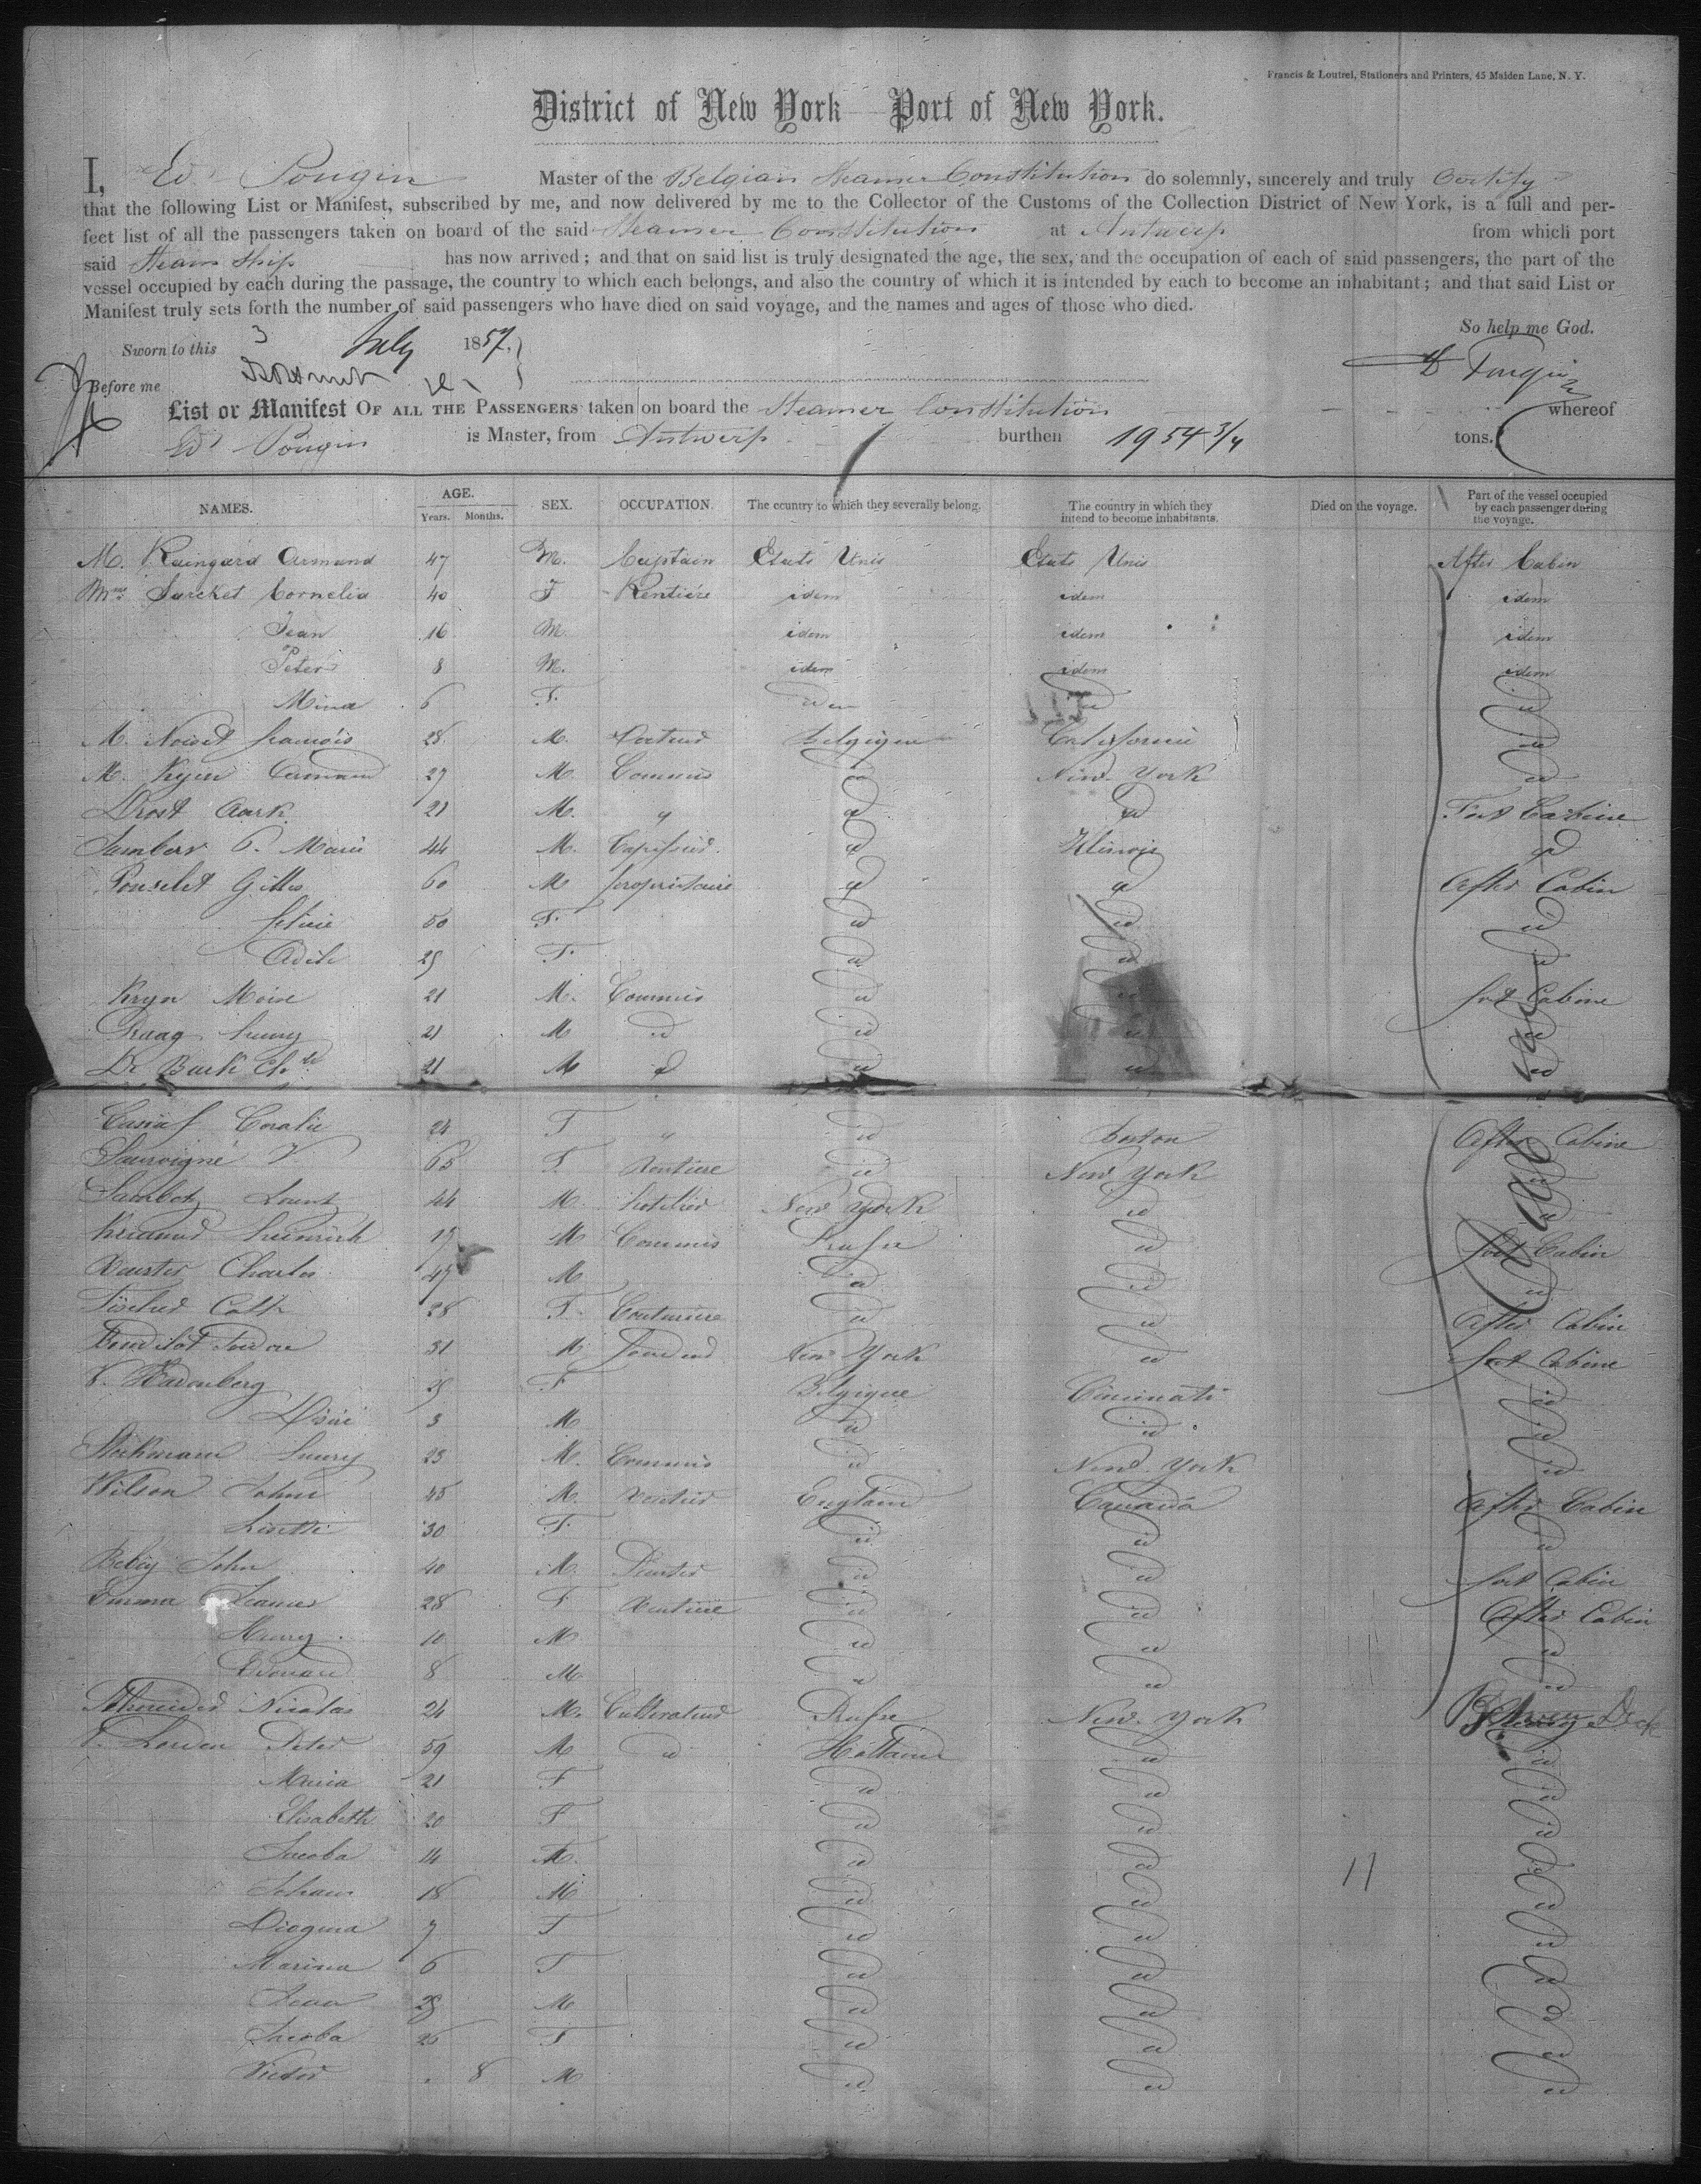 Francis & Loutrel, Stationers and Printers, 45 Maiden Lane, N. Y.
District of New York Port of New York.
I, Ed Pougin Master of the Belgian Steamer Constitution do solemnly, sincerely and truly Certify
that the following List or Manifest, subscribed by me, and now delivered by me to the Collector of the Customs of the Collection District of New York, is a full and per-
fect list of all the passengers taken on board of the said Steamer Constitution at Antwerp from which port
said Steam Ship has now arrived; and that on said list is truly designated the age, the sex, and the occupation of each of said passengers, the part of the
vessel occupied by each during the passage, the country to which each belongs, and also the country of which it is intended by each to become an inhabitant; and that said List or
Manifest truly sets forth the number of said passengers who have died on said voyage, and the names and ages of those who died.
So help me God.
Sworn to this 3 July 1857.
Ed Pougin
Before me
List or Manifest OF ALL THE PASSENGERS taken on board the Steamer Constitution whereof
Ed Pougin is Master, from Antwerp burthen 1954 3/4 tons.
NAMES. AGE. Years. Months. SEX. OCCUPATION. The country to which they severally belong. The country in which they intend to become inhabitants. Died on the voyage. Part of the vessel occupied by each passenger during the voyage.
M. Raingard Armand 47 M. Captain Etats Unis Etats Unis After Cabin
Mme Sarcket Cornelia 40 F Rentière idem idem idem
Jean 16 M. idem idem idem
Peter 8 M. idem idem idem
Mina 6 F. idem id id
M. Noiset François 28 M. Belgique Californie id
M. Armand 27 M. Commis id New York id
Drost 21 M. " id id Fort Cabine
P. Marie 44 M. id Illinois id
Ponselet Gilles 60 M propriétaire id id After Cabin
50 F. id id id
Adèle 25 F. id id id
Kryn Moise 21 M. Commis id id fort Cabine
Praag henry 21 M id id id id
De Back 21 M id id id id
Coralie 24 F " id Boston After Cabine
V. 65 F. Rentiere id New York id
44 M. hotelier New York id id
heinrich 19 M Commis Prusse id fort Cabin
Charles 47 M id id id
Cath 28 F. Couturière id id After Cabin
31 M. New York id fort Cabine
V. Hadenberg 25 F Belgique Cincinati id
Désiré 3 M id id id
Stockmann henry 23 M. Commis id New York id
Wilson John 45 M. rentier England Canada After Cabin
30 F. id id id
John 40 M. id id fort Cabin
Emma 28 F Rentiere id id After Cabin
Henry 10 M id id id
Edouard 8 M. id id id
Schneider Nicolas 24 M. Cultivateur Prusse New York Between Deck
V. Leuven Peter 59 M id Holland id id
Maria 21 F id id id
Elisabeth 20 F id id id
Jacoba 14 id id 11 id
Johan 18 M id id id
Dingena 7 F id id id
Marina 6 F id id id
25 M id id id
Jacoba 25 F id id id
Victor 8 M id id id